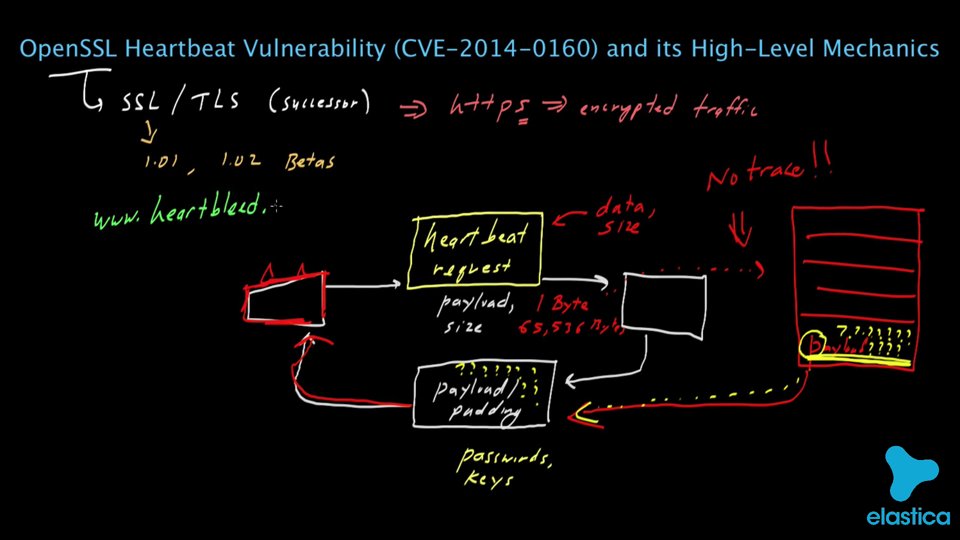 OpenSSL Heartbeat Vulnerability (CVE-2014-0160) and its High-Level Mechanics
SSL / TLS (successor) ⇒ https ⇒ encrypted traffic
1.01, 1.02 Betas
No trace!!
www.heartbleed.
heartbeat
request
data,
size
payload,
size
1 Byte
65,536 Byte
?.??????
payload ????
??????
payload/??
padding
passwords,
keys
elastica